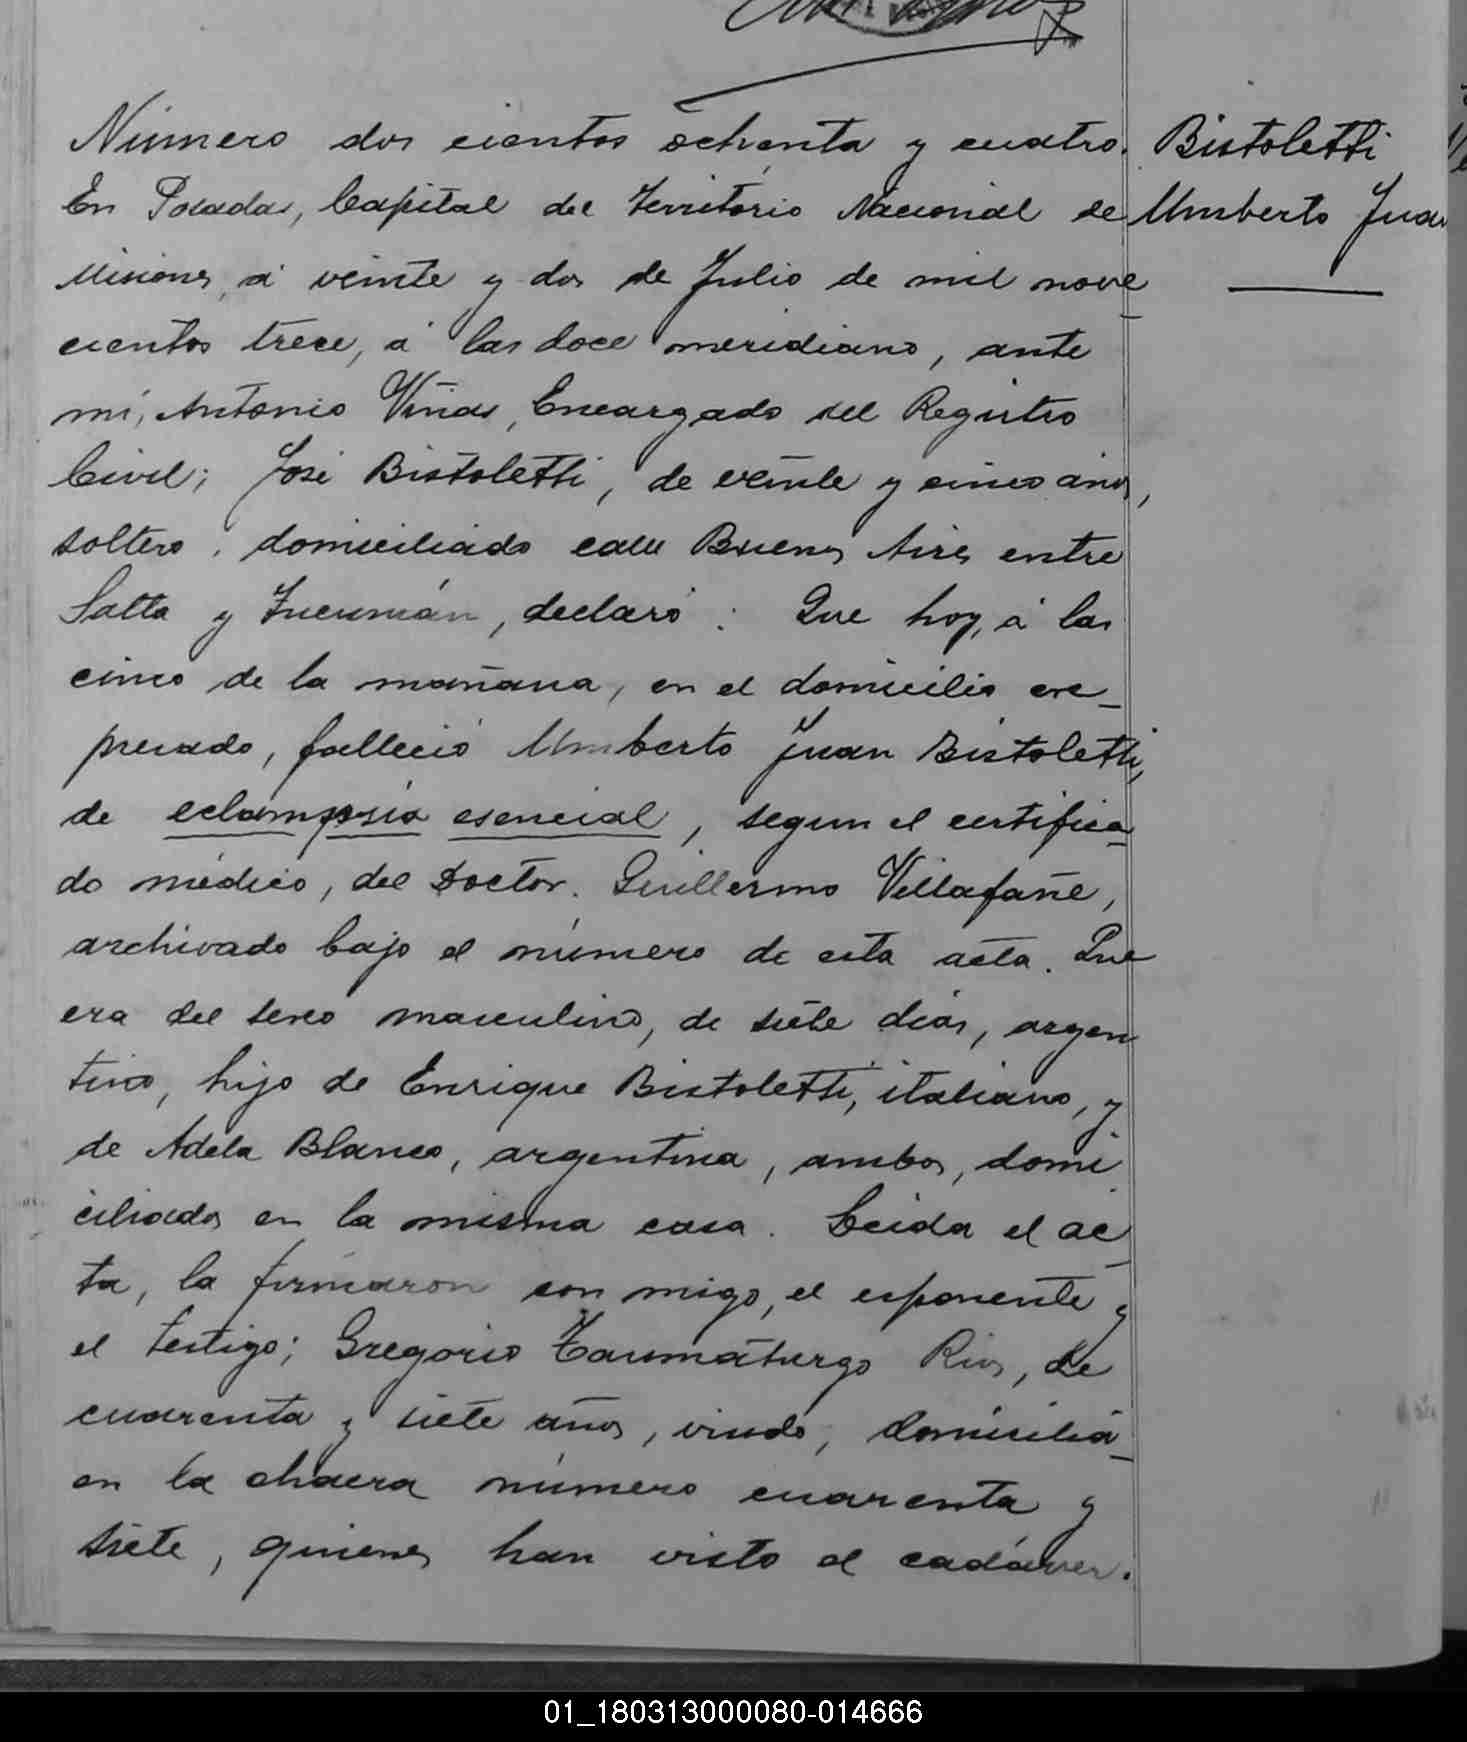 Número dos cientos ochenta y cuatro.
En Posadas, Capital del Territorio Nacional de
Misiones, á veinte y dos de Julio de mil nove_
cientos trece, á las doce meridiano, ante
mí, Antonio Viñas, Encargado del Registro
Civil; José Bistoletti, de veinte y cinco años,
soltero, domiciliado calle Buenos Aires entre
Salta y Tucumán, declaró: Que hoy, á las
cinco de la mañana, en el domicilio ex_
presado, falleció Umberto Juan Bistoletti,
de eclampsia esencial, segun el certifica_
do médico, del Doctor. Guillermo Villafañe,
archivado bajo el número de esta acta. Que
era del sexo masculino, de siete dias, argen
tino, hijo de Enrique Bistoletti, italiano, y
de Adela Blanco, argentina, ambos, domi
ciliados en la misma casa. Leida el ac_
ta, la firmaron con migo, el esponente y
el testigo; Gregorio Taumáturgo Rios, de
cuarenta y siete años, viudo, domicilia_
en la chacra número cuarenta y
siete, quienes han visto el cadáver.
Bistoletti
Umberto Juan
01_180313000080-014666